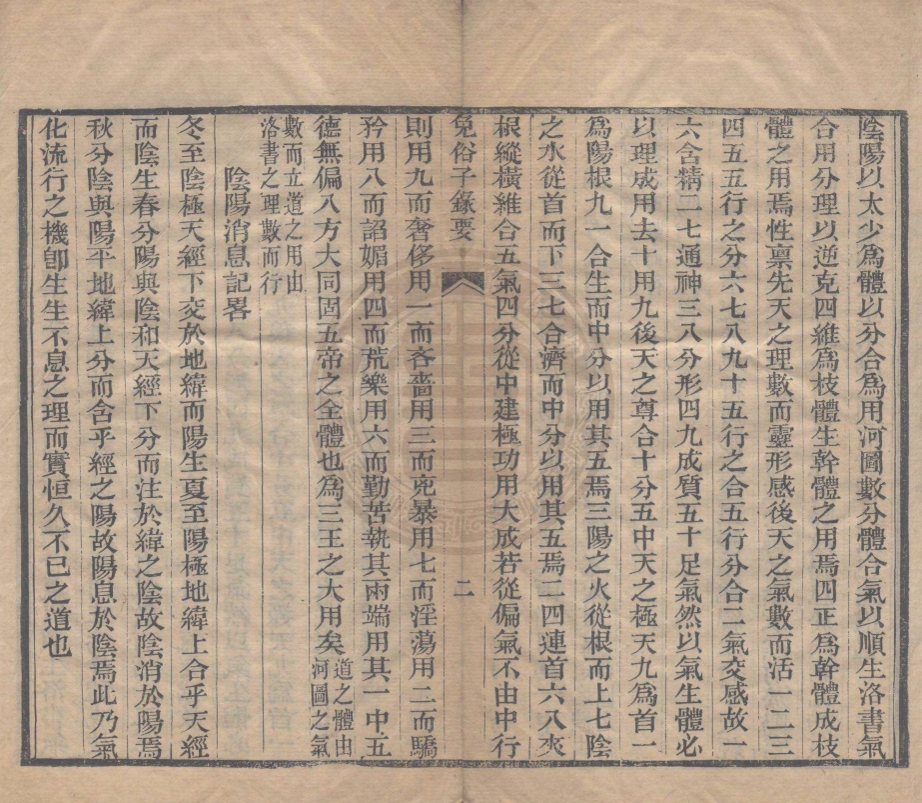 陰陽以太少爲體以分合爲用河圖數分體合氣以順生洛書氣
合用分理以逆克四維爲枝體生幹體之用焉四正爲幹體成枝
體之用焉性禀先天之理數而靈形感後天之氣數而活一二三
四五五行之分六七八九十五行之合五行分合二氣交感故一
六合精二七通神三八分形四九成質五十足氣然以氣生體必
以理成用去十用九後天之尊合十分五中天之極天九爲首一
爲陽根九一合生而中分以用其五焉三陽之火從根而上七陰
之水從首而下三七合濟而中分以用其五焉二四連首六八夾
根縱橫維合五氣四分從中建極功用大成若從偏氣不由中行
免俗子錄要
二
則用九而奢侈用一而吝嗇用三而兇暴用七而淫蕩用二而驕
矜用八而諂媚用四而荒樂用六而勤苦執其兩端用其一中五
德無偏八方大同固五帝之全體也爲三王之大用矣道之體由
河圖之氣
數而立道之用由
洛書之理數而行
陰陽消息記畧
冬至陰極天經下交於地緯而陽生夏至陽極地緯上合乎天經
而陰生春分陽與陰和天經下分而注於緯之陰故陰消於陽焉
秋分陰與陽平地緯上分而含乎經之陽故陽息於陰焉此乃氣
化流行之機卽生生不息之理而實恒久不已之道也